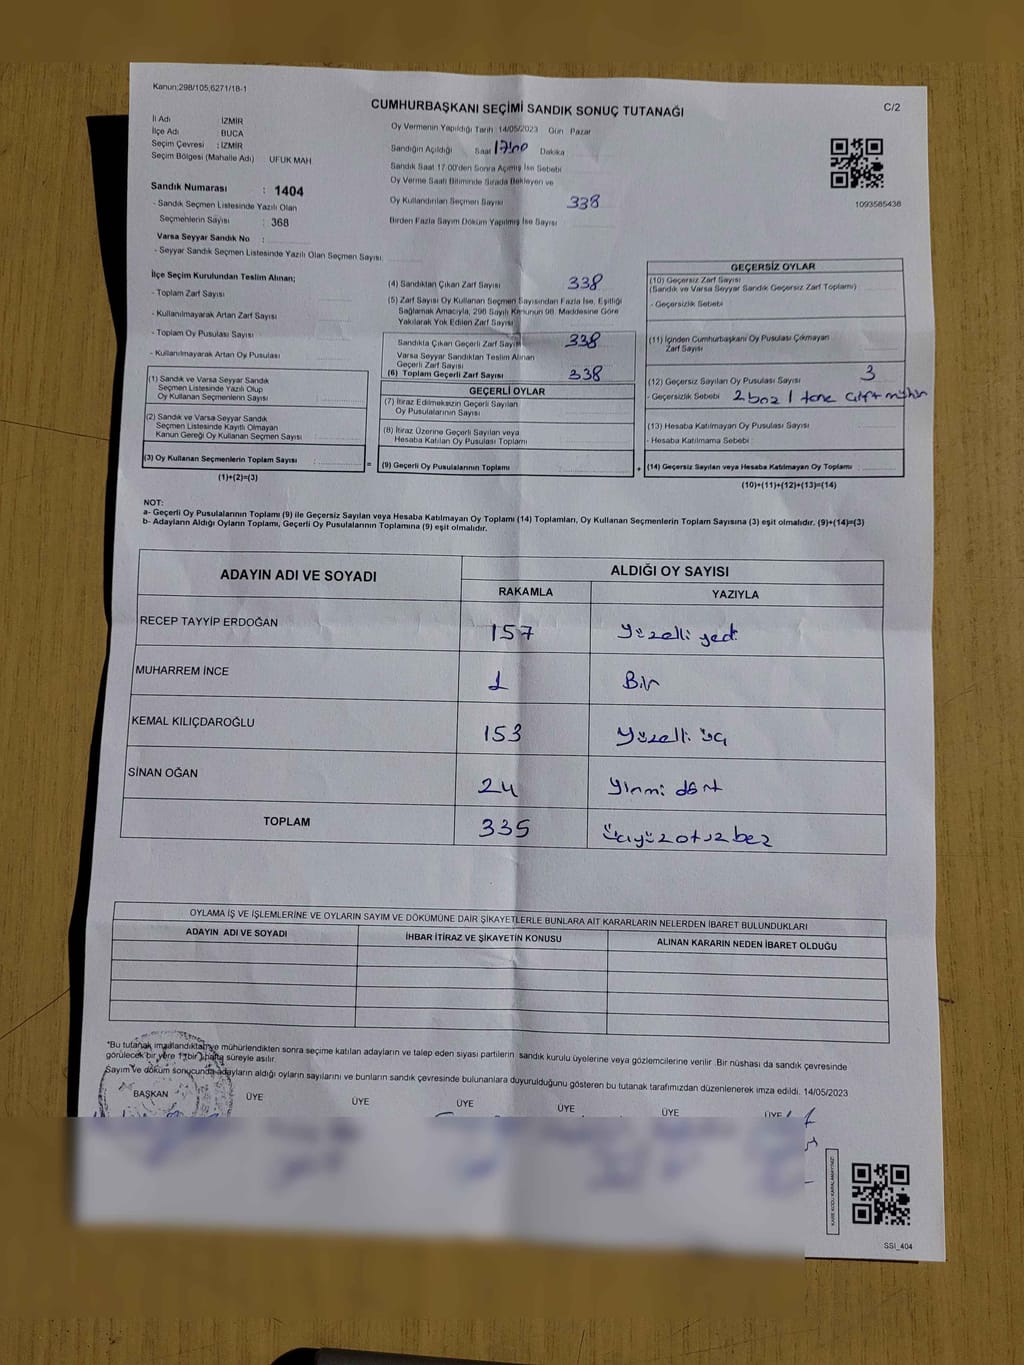 Kanun;298/105,6271/18-1
CUMHURBAŞKANI SEÇİMİ SANDIK SONUÇ TUTANAĞI
C/2
İli Adı : İZMİR
İlçe Adı BUCA
Seçim Çevresi : İZMİR
Seçim Bölgesi (Mahalle Adı) UFUK MAH
Sandık Numarası : 1404
- Sandık Seçmen Listesinde Yazılı Olan
Seçmenlerin Sayısı : 368
Varsa Seyyar Sandık No :
- Seyyar Sandık Seçmen Listesinde Yazılı Olan Seçmen Sayısı:
Oy Vermenin Yapıldığı Tarih 14/05/2023 Gün Pazar
Sandığın Açıldığı Saat 17:00 Dakika
Sandık Saat 17:00'den Sonra Açılmış İse Sebebi
Oy Verme Saati Bitiminde Sırada Bekleyen ve
Oy Kullandırılan Seçmen Sayısı 338
Birden Fazla Sayım Döküm Yapılmış İse Sayısı
1093585438
İlçe Seçim Kurulundan Teslim Alınan;
- Toplam Zarf Sayısı
- Kullanılmayarak Artan Zarf Sayısı
- Toplam Oy Pusulası Sayısı
- Kullanılmayarak Artan Oy Pusulası
(1) Sandık ve Varsa Seyyar Sandık
Seçmen Listesinde Yazılı Olup
Oy Kullanan Seçmenlerin Sayısı :
(2) Sandık ve Varsa Seyyar Sandık
Seçmen Listesinde Kayıtlı Olmayan
Kanun Gereği Oy Kullanan Seçmen Sayısı :
(3) Oy Kullanan Seçmenlerin Toplam Sayısı :
(1)+(2)=(3)
(4) Sandıktan Çıkan Zarf Sayısı 338
(5) Zarf Sayısı Oy Kullanan Seçmen Sayısından Fazla İse, Eşitliği
Sağlamak Amacıyla, 298 Sayılı Kanunun 98. Maddesine Göre
Yakılarak Yok Edilen Zarf Sayısı
Sandıkta Çıkan Geçerli Zarf Sayısı 338
Varsa Seyyar Sandıktan Teslim Alınan
Geçerli Zarf Sayısı
(6) Toplam Geçerli Zarf Sayısı 338
GEÇERLİ OYLAR
(7) İtiraz Edilmeksizin Geçerli Sayılan
Oy Pusulalarının Sayısı
(8) İtiraz Üzerine Geçerli Sayılan veya
Hesaba Katılan Oy Pusulası Toplamı
= (9) Geçerli Oy Pusulalarının Toplamı
GEÇERSİZ OYLAR
(10) Geçersiz Zarf Sayısı
(Sandık ve Varsa Seyyar Sandık Geçersiz Zarf Toplamı)
- Geçersizlik Sebebi
(11) İçinden Cumhurbaşkanı Oy Pusulası Çıkmayan
Zarf Sayısı
(12) Geçersiz Sayılan Oy Pusulası Sayısı 3
- Geçersizlik Sebebi 2 boz 1 tane çift mühür
(13) Hesaba Katılmayan Oy Pusulası Sayısı
- Hesaba Katılmama Sebebi
+ (14) Geçersiz Sayılan veya Hesaba Katılmayan Oy Toplamı :
(10)+(11)+(12)+(13)=(14)
NOT:
a- Geçerli Oy Pusulalarının Toplamı (9) ile Geçersiz Sayılan veya Hesaba Katılmayan Oy Toplamı (14) Toplamları, Oy Kullanan Seçmenlerin Toplam Sayısına (3) eşit olmalıdır. (9)+(14)=(3)
b- Adayların Aldığı Oyların Toplamı, Geçerli Oy Pusulalarının Toplamına (9) eşit olmalıdır.
ADAYIN ADI VE SOYADI
ALDIĞI OY SAYISI
RAKAMLA YAZIYLA
RECEP TAYYİP ERDOĞAN 157 Yüzelli yedi
MUHARREM İNCE 1 Bir
KEMAL KILIÇDAROĞLU 153 Yüzelli üç
SİNAN OĞAN 24 Yirmi dört
TOPLAM 335 üçyüzotuzbeş
OYLAMA İŞ VE İŞLEMLERİNE VE OYLARIN SAYIM VE DÖKÜMÜNE DAİR ŞİKAYETLERLE BUNLARA AİT KARARLARIN NELERDEN İBARET BULUNDUKLARI
ADAYIN ADI VE SOYADI İHBAR İTİRAZ VE ŞİKAYETİN KONUSU ALINAN KARARIN NEDEN İBARET OLDUĞU
*Bu tutanak imzalandıktan ve mühürlendikten sonra seçime katılan adayların ve talep eden siyasi partilerin sandık kurulu üyelerine veya gözlemcilerine verilir. Bir nüshası da sandık çevresinde
görülecek bir yere 1 (bir) hafta süreyle asılır.
Sayım ve döküm sonucunda adayların aldığı oyların sayılarını ve bunların sandık çevresinde bulunanlara duyurulduğunu gösteren bu tutanak tarafımızdan düzenlenerek imza edildi. 14/05/2023
BAŞKAN ÜYE ÜYE ÜYE ÜYE ÜYE ÜYE
KARE KODU KARALAMAYINIZ!
SSI_404